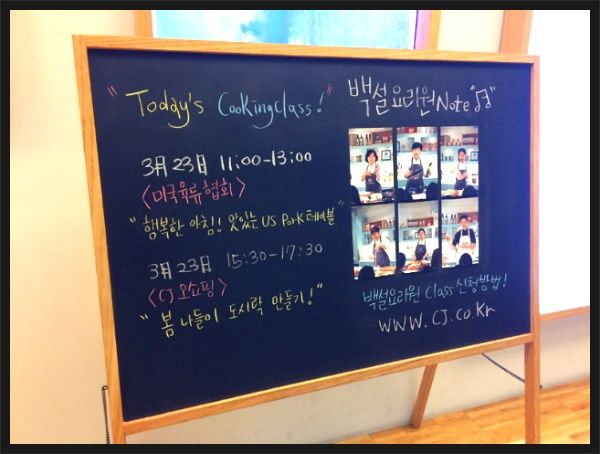 "Today's Cookingclass!"
3月23日 11:00-13:00
<미국육류협회>
"행복한 아침! 맛있는 US Pork 테이블"
3月23日 15:30-17:30
<CJ오쇼핑>
"봄 나들이 도시락 만들기!"
백설요리원Note"♬"
백설요리원 Class신청방법!
www.CJ.co.kr